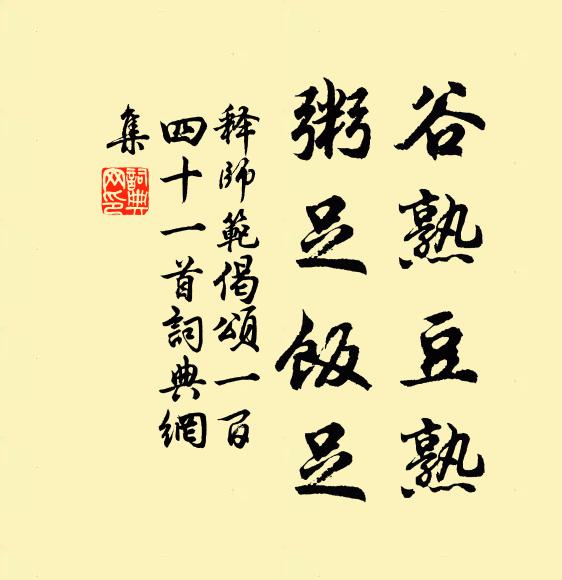 谷熟豆熟
粥足飯足
释師範偈頌一百
四十一首詞典網
集
詞典
网印